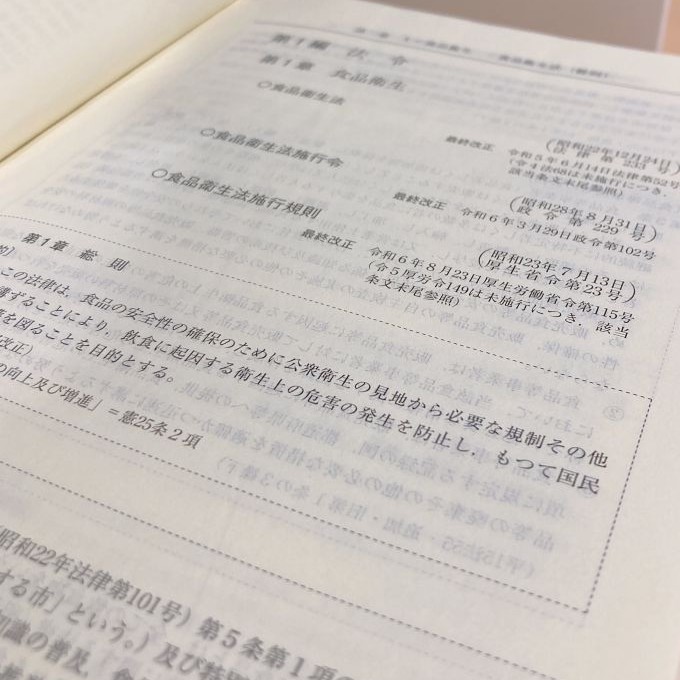 第1編 法令
第1章 食品衛生
○食品衛生法
(昭和22年12月24日
法律第233号)
最終改正 令和5年6月14日法律第52号
(令4法68は未施行につき,
該当条文末尾参照)
○食品衛生法施行令
(昭和28年8月31日
政令第229号)
最終改正 令和6年3月29日政令第102号
○食品衛生法施行規則
(昭和23年7月13日
厚生省令第23号)
最終改正 令和6年8月23日厚生労働省令第115号
(令5厚労令149は未施行につき,該当
条文末尾参照)
第1章 総則
的)
この法律は,食品の安全性の確保のために公衆衛生の見地から必要な規制その他
ずることにより,飲食に起因する衛生上の危害の発生を防止し,もつて国民
を図ることを目的とする。
改正)
の向上及び増進」=憲25条2項
昭和22年法律第101号)第5条第1項の
する市」という。)及び特別
知識の普及,